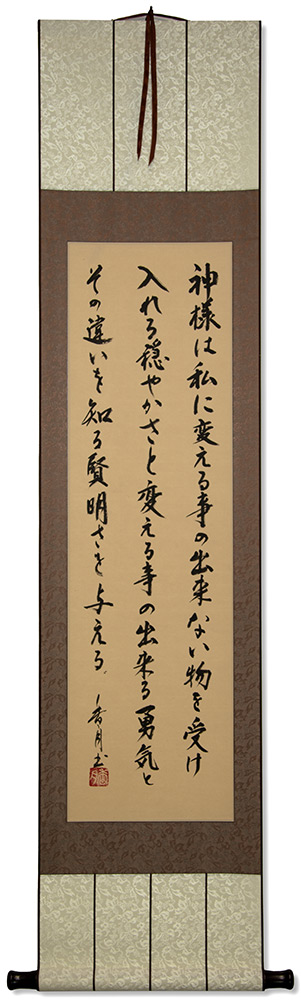 神様は私に変える事の出来ない物を受け
入れる穏やかさと変える事の出来る勇気と
その違いを知る賢明さを与える
香月书